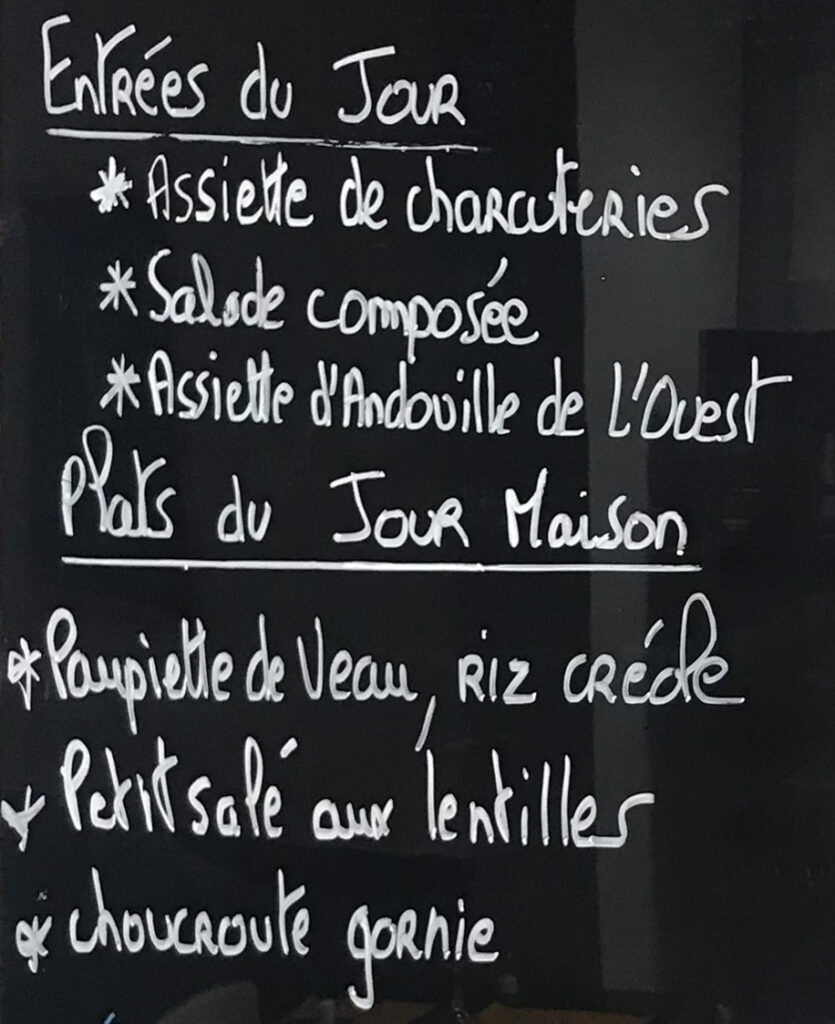 Entrées du Jour
* Assiette de charcuteries
* Salade composée
* Assiette d'Andouille de L'Ouest
Plats du Jour Maison
* Paupiette de Veau, Riz créole
* Petit salé aux lentilles
* choucroute garnie